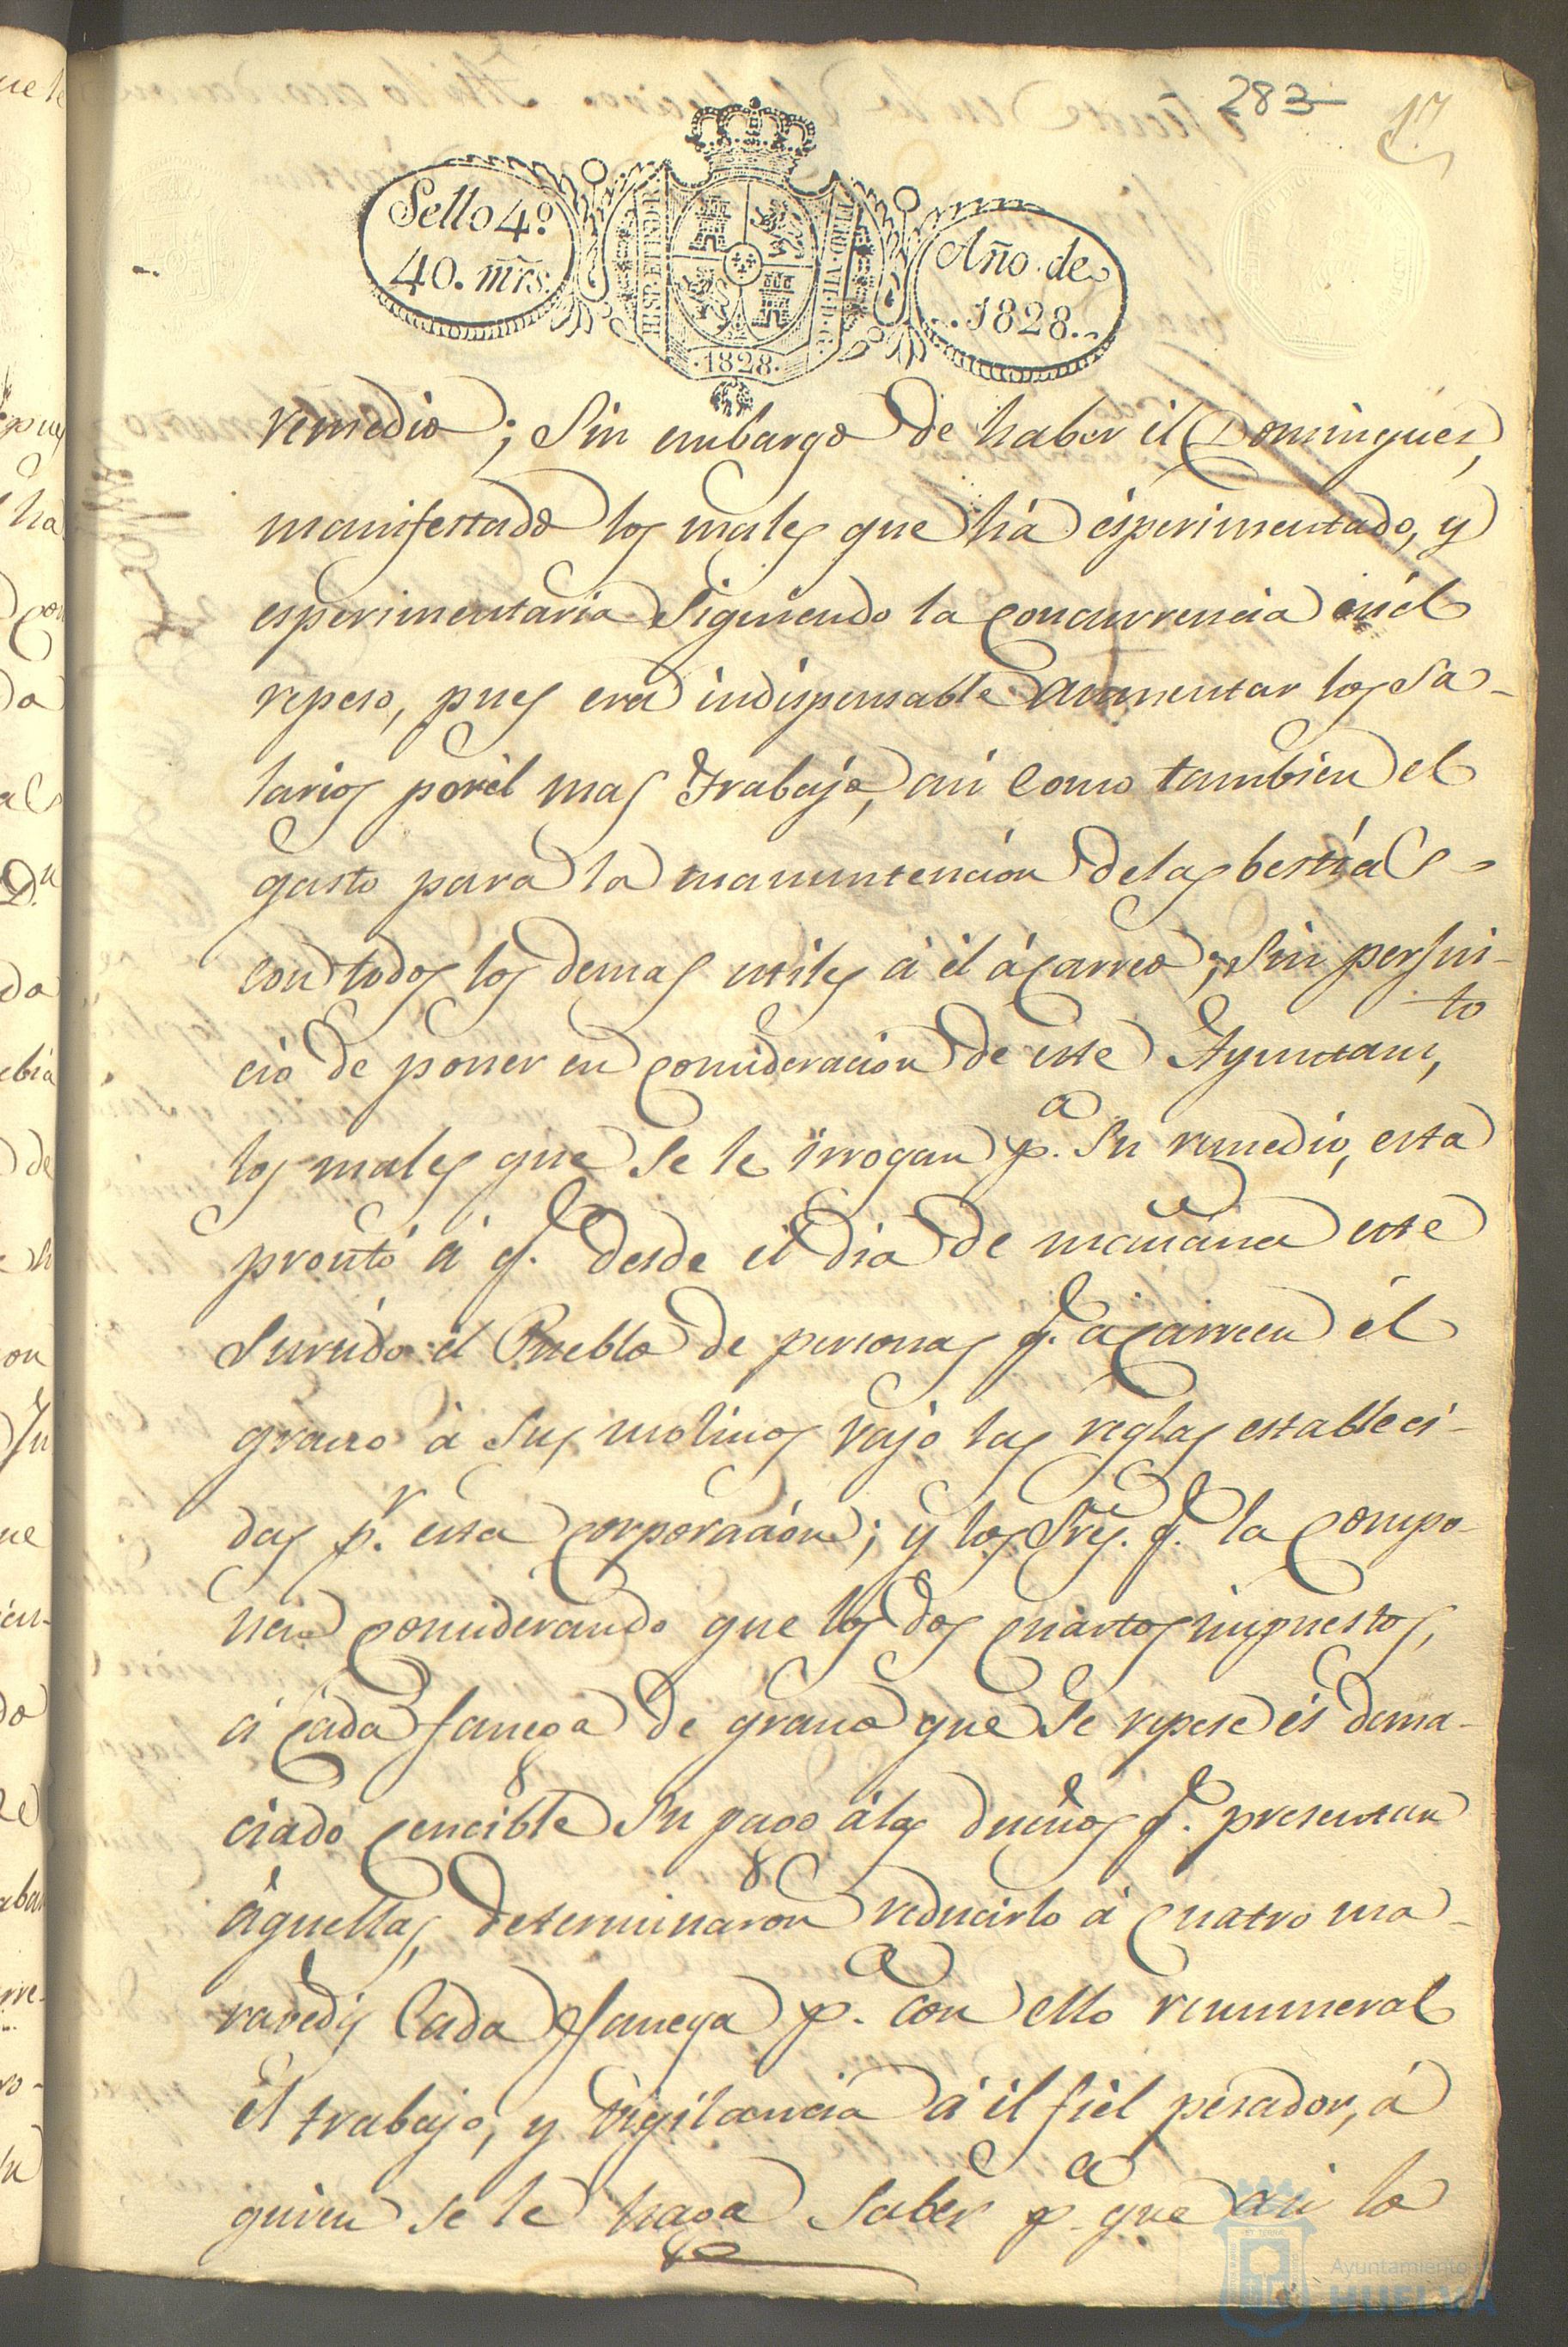 283
17
Sello 4º
40. mrs.
HISP. ET IND. R.
1828
Año de
1828
remedio; Sin embargo de haber él Domingues,
manifestado los males que há ésperimentado, y
esperimentaria Siguiendo la concurrencia en él
repeso, pues era indispensable aumentar los Sa-
larios por él mas trabajo, asi como tambien el
gasto para la manuntencion de las bestias
con todos los demas utiles á él ácarreo; Sin perjui-
cio de poner en consideracion de este Ayuntamto,
los males que Se le irrogan pa. Su remedio, esta
pronto á qe. desde el dia de mañana este
Surtido el Pueblo de personas qe. acarreen él
grano á Sus molinos vajo las reglas estableci-
das pr. esta corporacion; y los Sres. qe. la compo-
nen considerando que los dos cuartos impuestos,
á cada fanega de grano que Se repese és dema-
ciado cencible Su pago á los dueños qe. presentan
áquellas, determinaron reducirlo á cuatro ma-
ravedis cada fanega pa. con ello remuneral
él trabajo, y vigilancia á él fiel pesador, á
quien se le haga Saber pa. que asi lo
Ayuntamiento
HUELVA